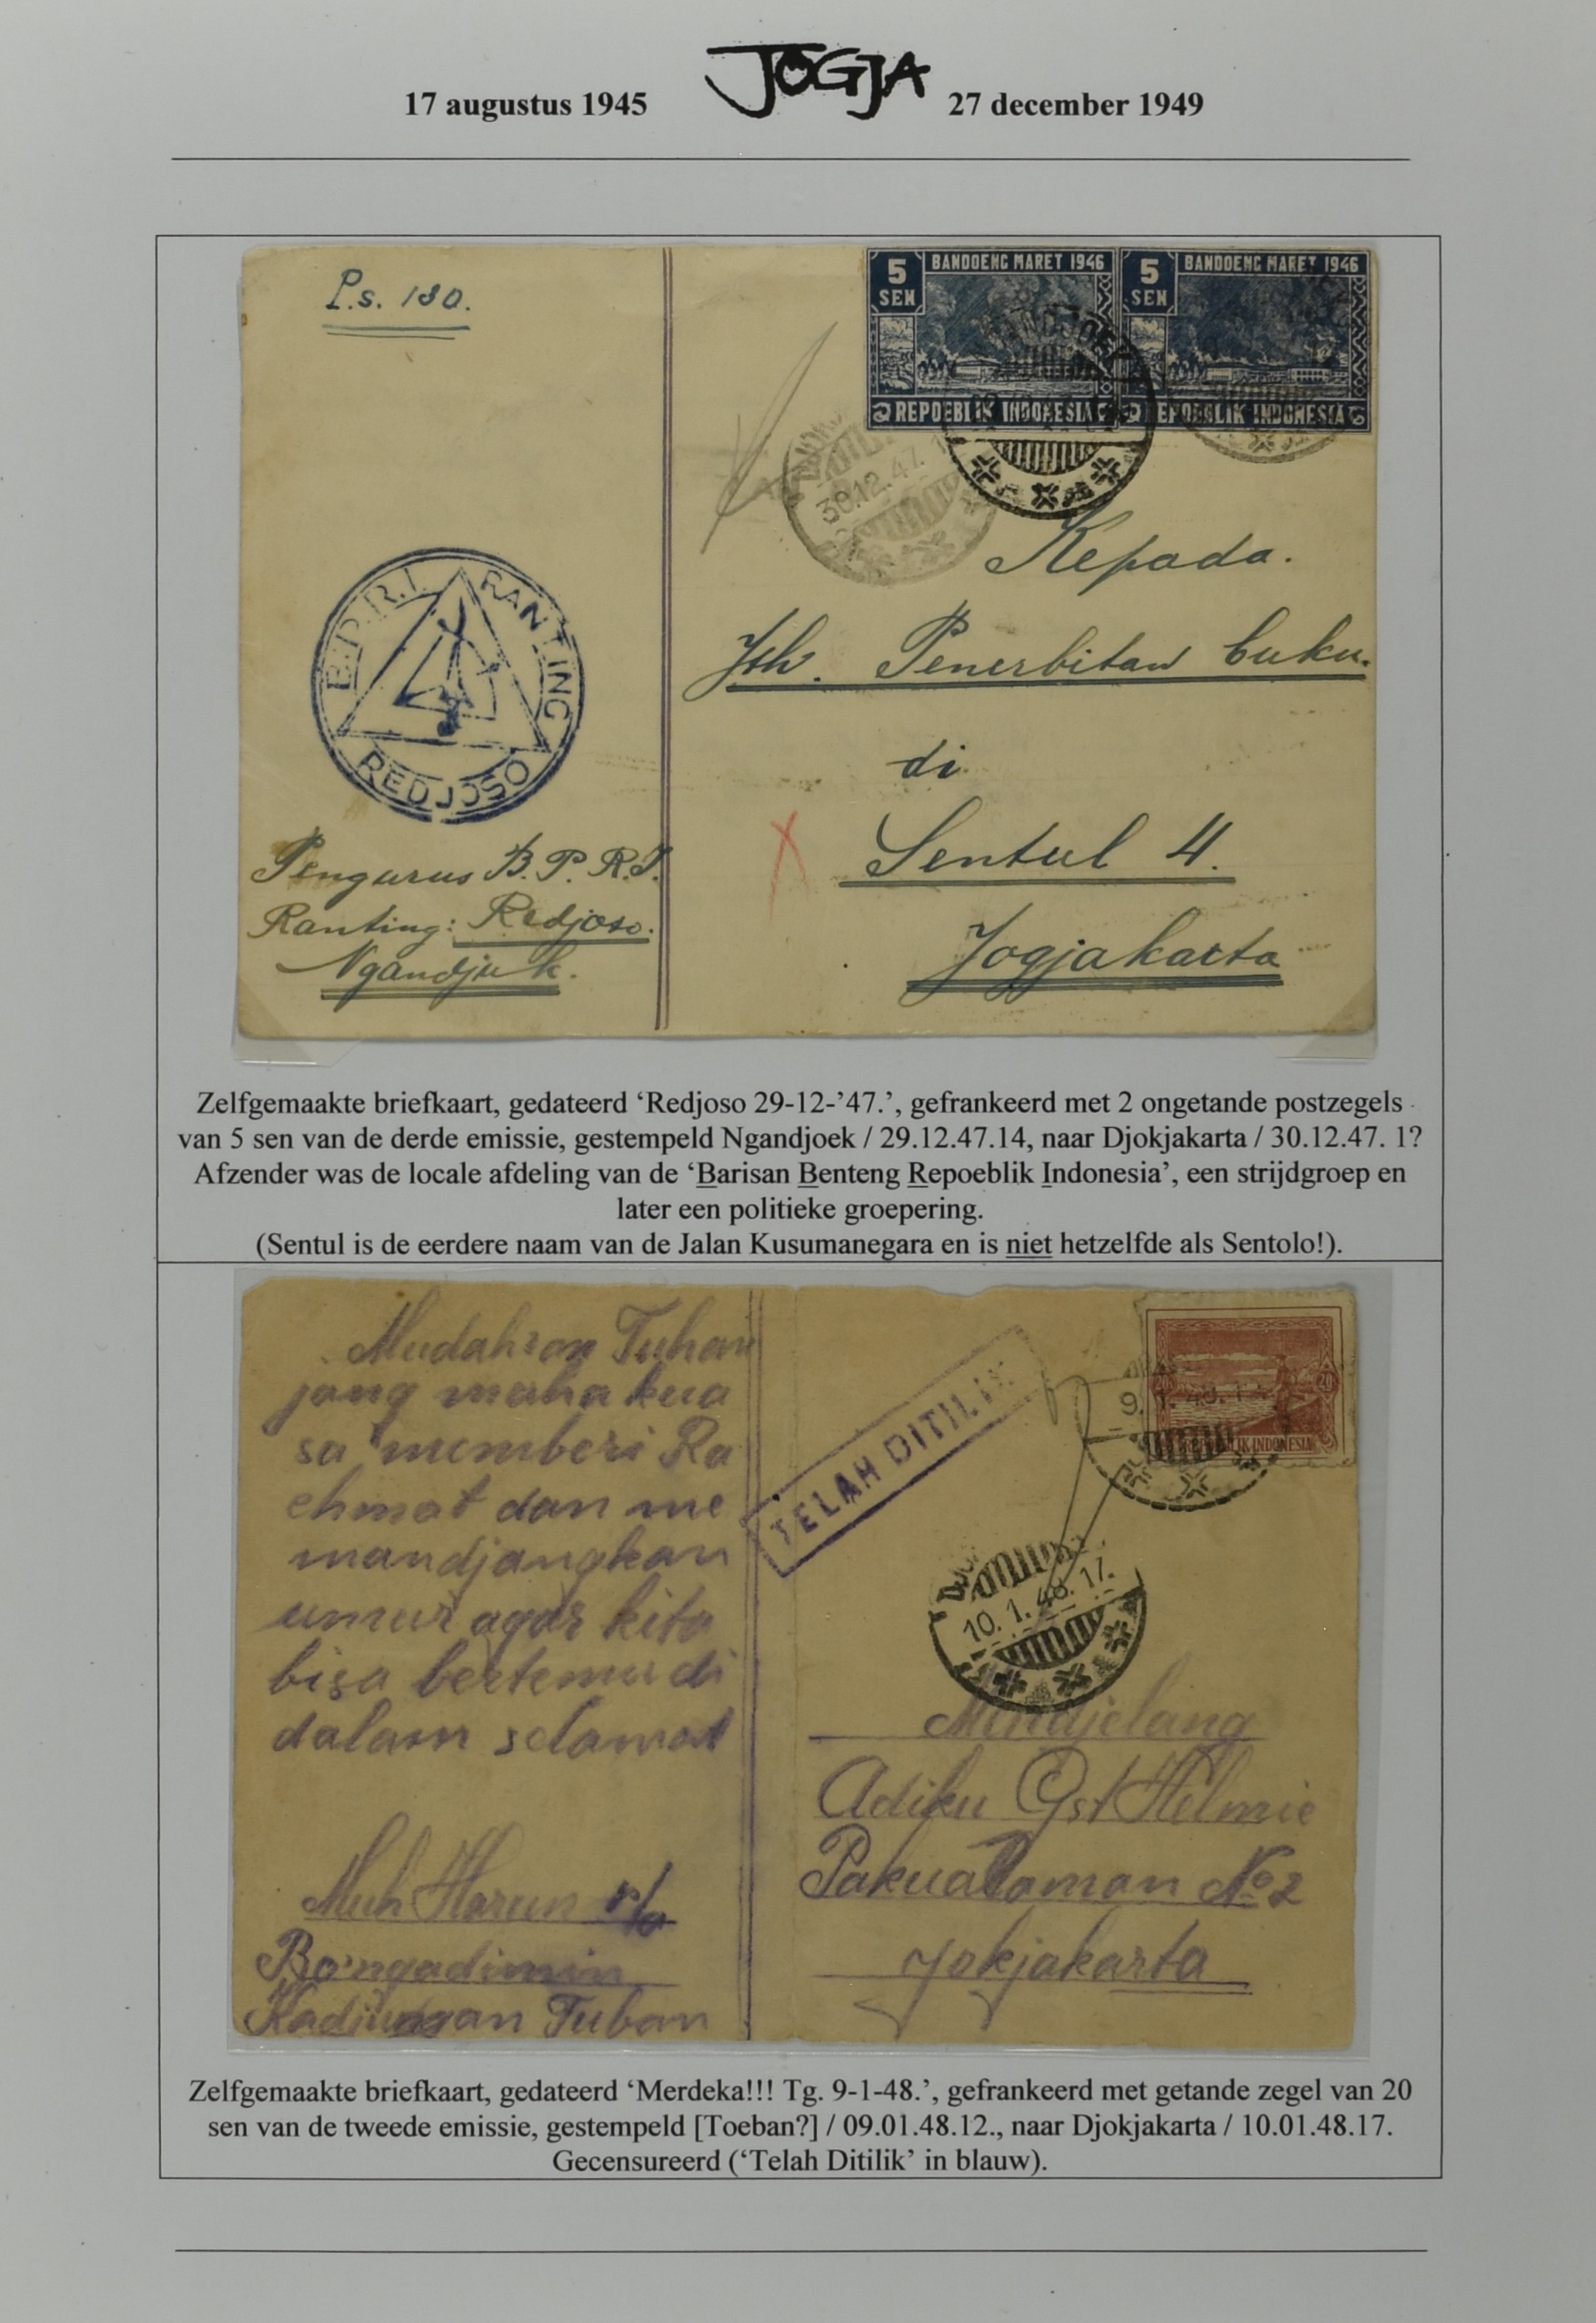 JOGJA
17 augustus 1945
27 december 1949
P.s. 130.
5 SEN BANDOENG MARET 1946
REPOEBLIK INDONESIA
5 SEN BANDOENG MARET 1946
REPOEBLIK INDONESIA
30.12.47.
B.P.R.I. RANTING
REDJOSO
Kepada.
Jth. Penerbitan buku.
di
Sentul 4.
Jogjakarta
Pengurus B.P.R.I.
Ranting: Redjoso.
Ngandjuk.
Zelfgemaakte briefkaart, gedateerd ‘Redjoso 29-12-’47.’, gefrankeerd met 2 ongetande postzegels
van 5 sen van de derde emissie, gestempeld Ngandjoek / 29.12.47.14, naar Djokjakarta / 30.12.47. 1?
Afzender was de locale afdeling van de ‘Barisan Benteng Repoeblik Indonesia’, een strijdgroep en
later een politieke groepering.
(Sentul is de eerdere naam van de Jalan Kusumanegara en is niet hetzelfde als Sentolo!).
Mudahran Tuhan
jang maha kua
sa memberi Ra
chmat dan me
mandjangkan
umur agar kita
bisa bertemu di
dalam selamat
Muh Harun
Kadjungan Tuban
TELAH DITILIK
20
REPOEBLIK INDONESIA
10.1.48.17.
Mendjelang
Adiku Gst Helmie
Pakualaman No 2
Jokjakarta
Zelfgemaakte briefkaart, gedateerd ‘Merdeka!!! Tg. 9-1-48.’, gefrankeerd met getande zegel van 20
sen van de tweede emissie, gestempeld [Toeban?] / 09.01.48.12., naar Djokjakarta / 10.01.48.17.
Gecensureerd (‘Telah Ditilik’ in blauw).